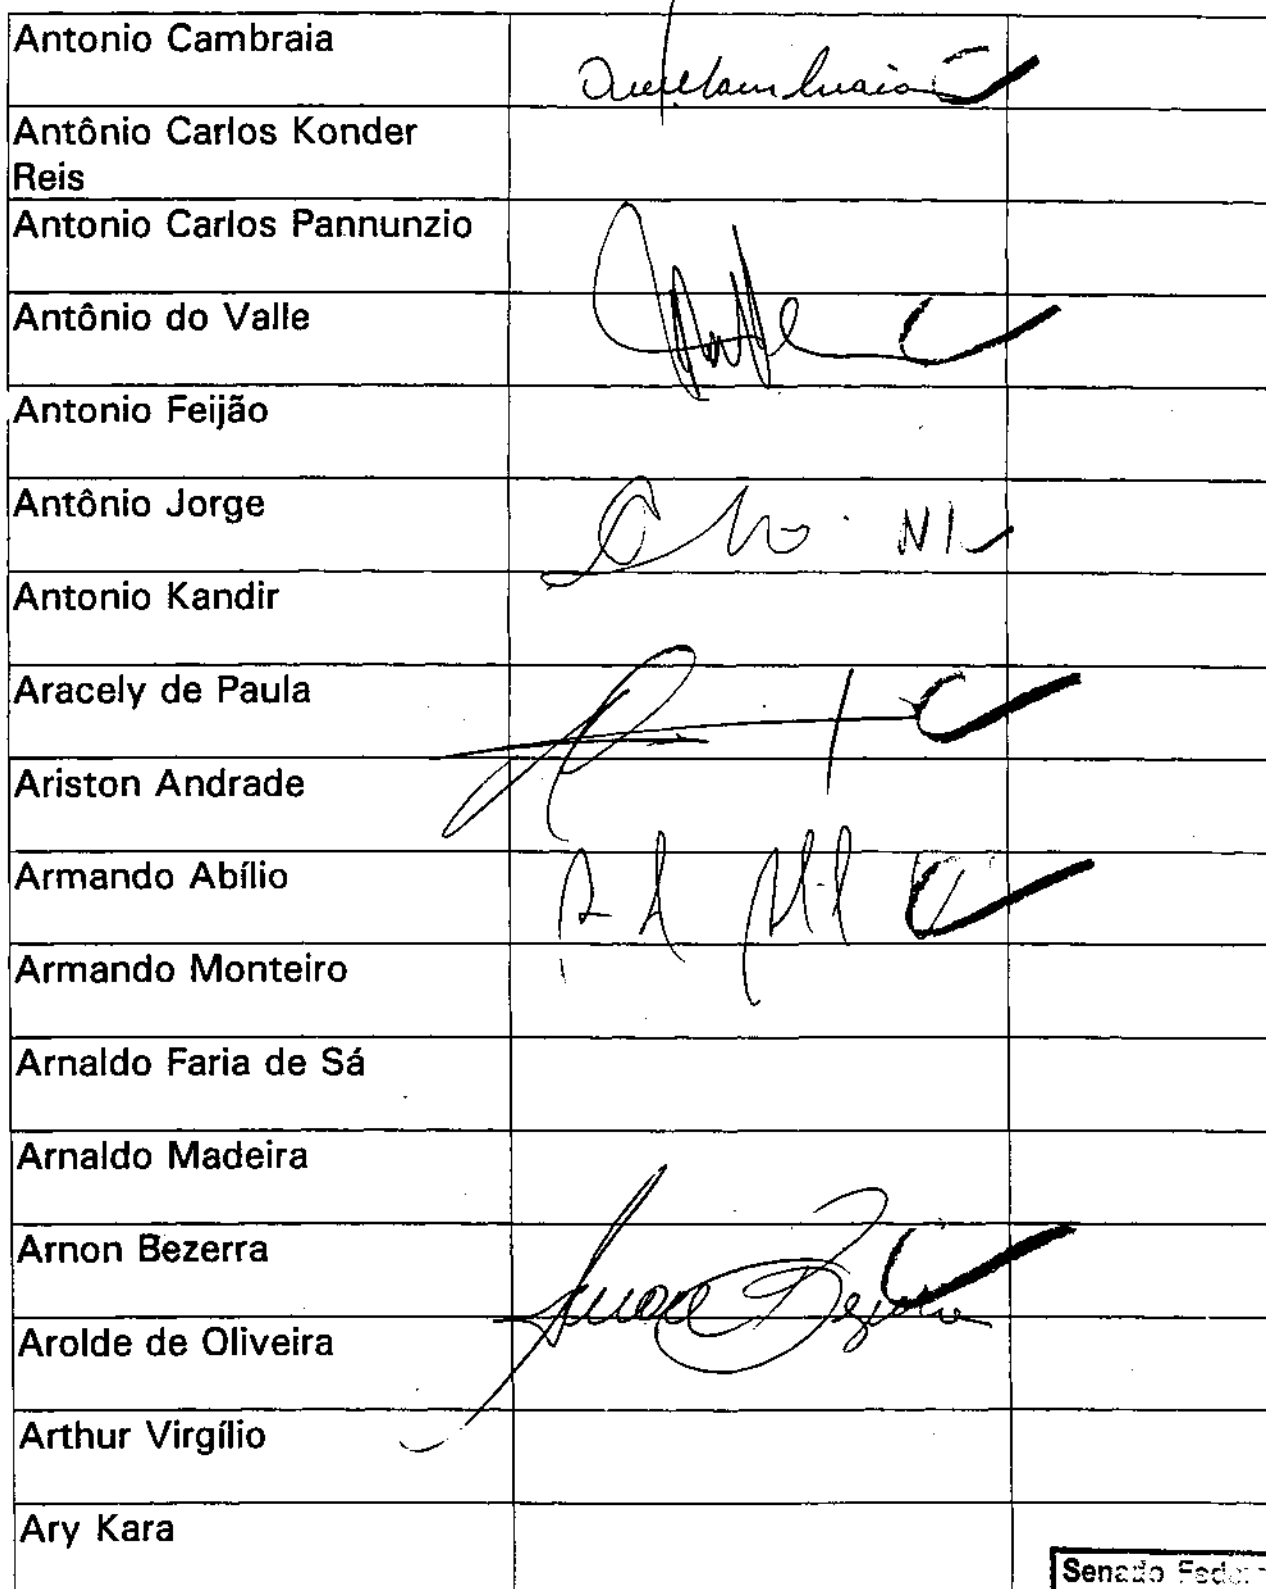 Antonio Cambraia
Antônio Carlos Konder
Reis
Antonio Carlos Pannunzio
Antônio do Valle
Antonio Feijão
Antônio Jorge
Antonio Kandir
Aracely de Paula
Ariston Andrade
Armando Abílio
Armando Monteiro
Arnaldo Faria de Sá
Arnaldo Madeira
Arnon Bezerra
Arolde de Oliveira
Arthur Virgílio
Ary Kara
Senado